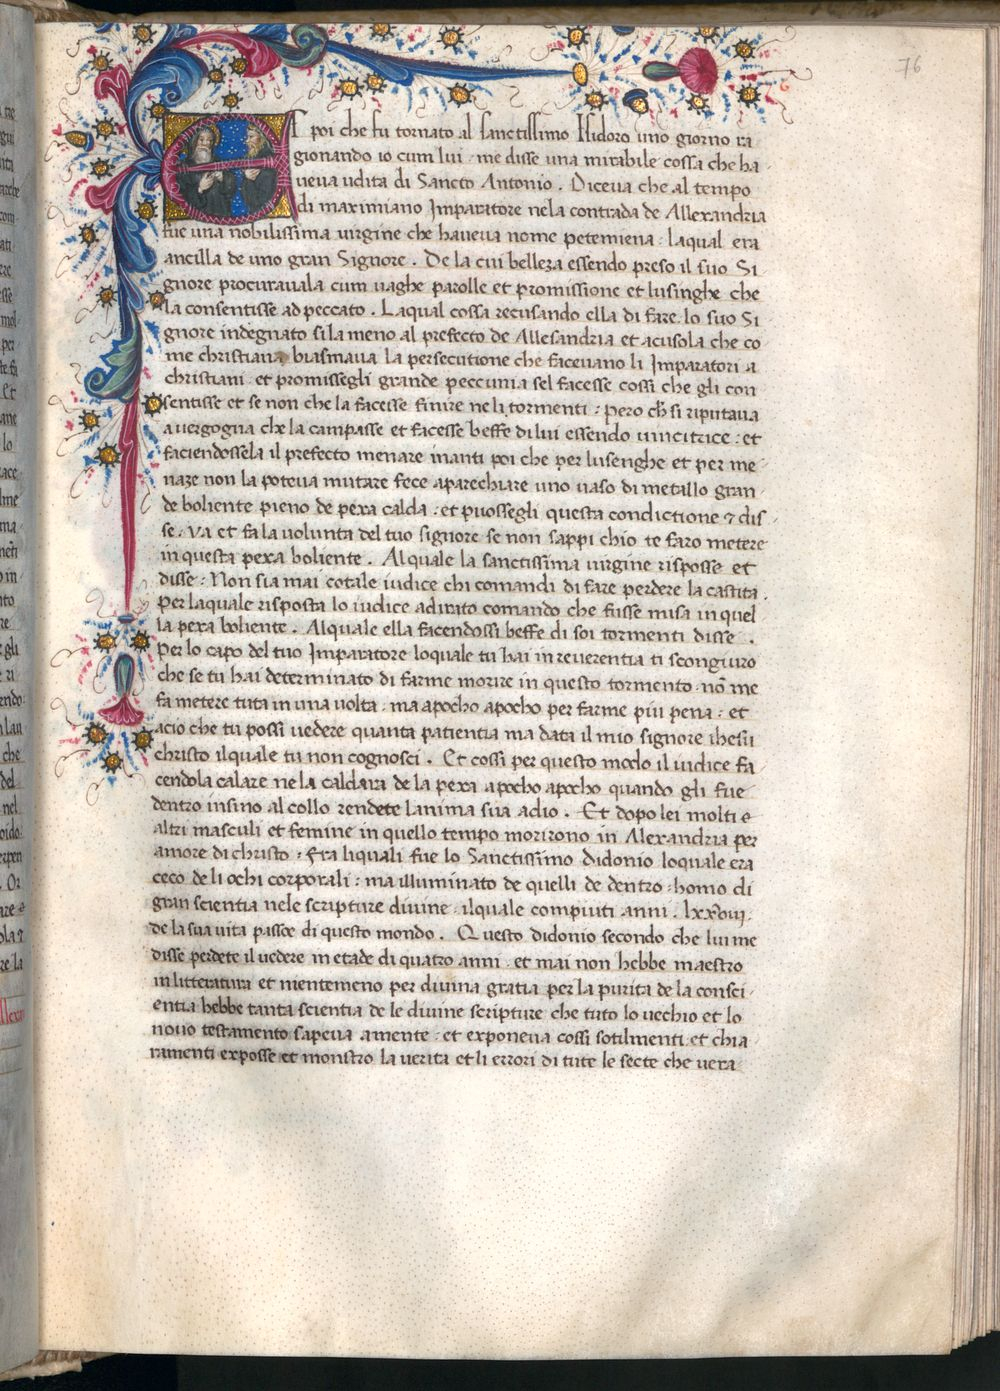 76
ET poi che fu tornato al sanctissimo Isidoro uno giorno ra
gionando io cum lui · me disse una mirabile cossa che ha
ueua udita di Sancto Antonio . Diceua che al tempo
di maximiano Imparatore nela contrada de Allexandria
fue una nobilissima uirgine che haueua nome petemiena : laqual era
ancilla de uno gran Signore . De la cui belleza essendo preso il suo Si-
gnore procurauala cum uaghe parolle et promissione et lusinghe che
la consentisse ad peccato . Laqual cossa recusando ella di fare · lo suo Si
gnore indegnato si la meno al prefecto de Allesandria et acusola che co
me christiana biasmaua la persecutione che faceuano li Imparatori a
christiani · et promissegli grande peccunia sel facesse cossi che gli con
sentisse et se non che la facesse finire neli tormenti : pero chʼ si riputaua
a uergogna che la campasse et facesse beffe di lui essendo uincitrice : et
faciendossela il prefecto menare inanti poi che per lusenghe et per me-
naze non la poteua mutare fece aparechiare uno uaso di metallo gran-
de boliente pieno de pexa calda : et puossegli questa condictione ⁊ dis-
se : Va et fa la volunta del tuo signore se non sappi chio te faro metere
in questa pexa boliente . Al quale la sanctissima uirgine risposse et
disse : Non sia mai cotale iudice chi comandi di fare perdere la castita .
Per laquale risposta lo iudice adirato comando che fusse misa in quel
la pexa boliente . Alquale ella facendossi beffe di soi tormenti disse .
Per lo capo del tuo Imparatore loquale tu hai in reuerentia ti scongiuro
che se tu hai determinato di farme morire in questo tormento · nō me
fa metere tuta in una uolta · ma apocho apocho per farme piu pena : et
acio che tu possi uedere quanta patientia ma data il mio signore ihesu
christo ilquale tu non cognosci . Et cossi per questo modo il iudice fa-
cendola calare ne la caldara de la pexa apocho apocho quando gli fue
dentro insino al collo rendete lanima sua adio . Et dopo lei molti e
altri masculi et femine in quello tempo morirono in Alexandria per
amore di christo : Fra liquali fue lo Sanctissimo didonio loquale era
ceco de li ochi corporali : ma illuminato de quelli de dentro : homo di
gran scientia nele scripture diuine · ilquale compiuti anni . lxxʹviij.
de la sua uita passoe di questo mondo . Questo didonio secondo che lui me
disse perdete il uedere in etade di quatro anni · et mai non hebbe maestro
in litteratura et nientemeno per diuina gratia per la purita de la consci-
entia hebbe tanta scientia de le diuine scripture che tuto lo uechio et lo
nouo testamento sapeua a mente : et exponeua cossi sotilmenti et chia
ramenti exposse et monstro la uerita et li errori di tute le secte che uera